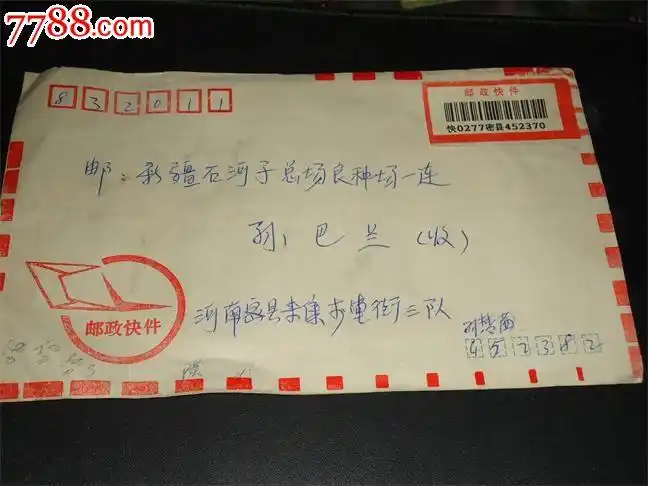 7788.com
中国收藏热线
832011
邮政快件
快0277密县452370
邮：新疆石河子总场良种场一连
孙：巴兰（收）
邮政快件
河南密县来集李堂街三队
452382